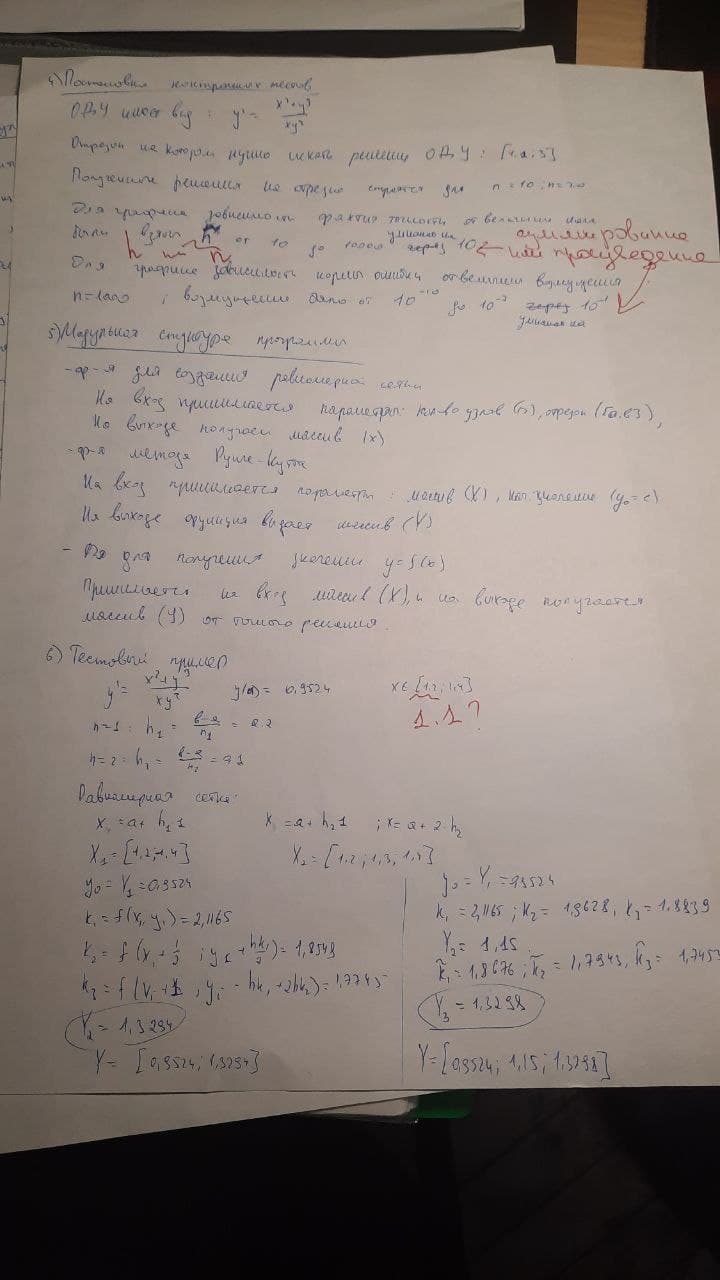 4) Постановка контрольных тестов
ОДУ имеет вид : y' = (x³+y³)/(xy²)
Отрезок на котором нужно искать решение ОДУ :
Полученные решения на отрезке строятся для n = 10 ; n = 20
Для графика зависимости фактич точности от величины шага
были взяты n от 10 до 10000 умножая на ~~через~~ 10 ← суммирование
h или n или произведение
Для графика зависимости нормы ошибки от величины возмущения
n=1000 ; возмущение дано от 10⁻¹⁰ до ~~через~~ 10⁻¹
умножая на
5) Модульная структура программы
- ф-я для создания равномерной сетки
На вход принимается параметры: кол-во узлов (n), отрезок ([a,b]),
На выходе получаем массив (x)
- ф-я метода Рунге-Кутта
На вход принимается параметры : массив (X), нач. значение (y₀ = c)
На выходе функция выдает массив (Y)
- для получения значений y = f(x)
Принимается на вход массив (X), и на выходе получается
массив (Y) от точного решения.
6) Тестовый пример
y' = (x³+y³)/(xy²) y(a) = 0,9524 x ∈ [1,2; 1,4]
1.1?
n=1 : h₁ = (b-a)/n₁ = 0.2
n=2 : h₂ = (b-a)/n₂ = 0.1
Равномерная сетка:
X₁ = a + h₁ 1 X₁ = a + h₂ 1 ; x = a + 2·h₂
X₁ = [1,2; 1,4] X₂ = [1,2; 1,3; 1,4]
y₀ = Y₁ = 0,9524
k₁ = f(x₁, y₁) = 2,1165
k₂ = f(x₁ + h/2 ; y₁ + hk₁/2) = 1,8549
k₃ = f(x₁ + h, y₁ - hk₁ + 2hk₂) = 1,7745
Y₂ = 1,3294
Y = [0,9524; 1,3294]
y₀ = Y₁ = 0,9524
k₁ = 2,1165 ; k₂ = 1,9628, k₃ = 1,8839
Y₂ = 1,15
k̃₁ = 1,8676; k̃₂ = 1,7943, k̃₃ = 1,7453
Y₃ = 1,3298
Y = [0,9524; 1,15; 1,3298]